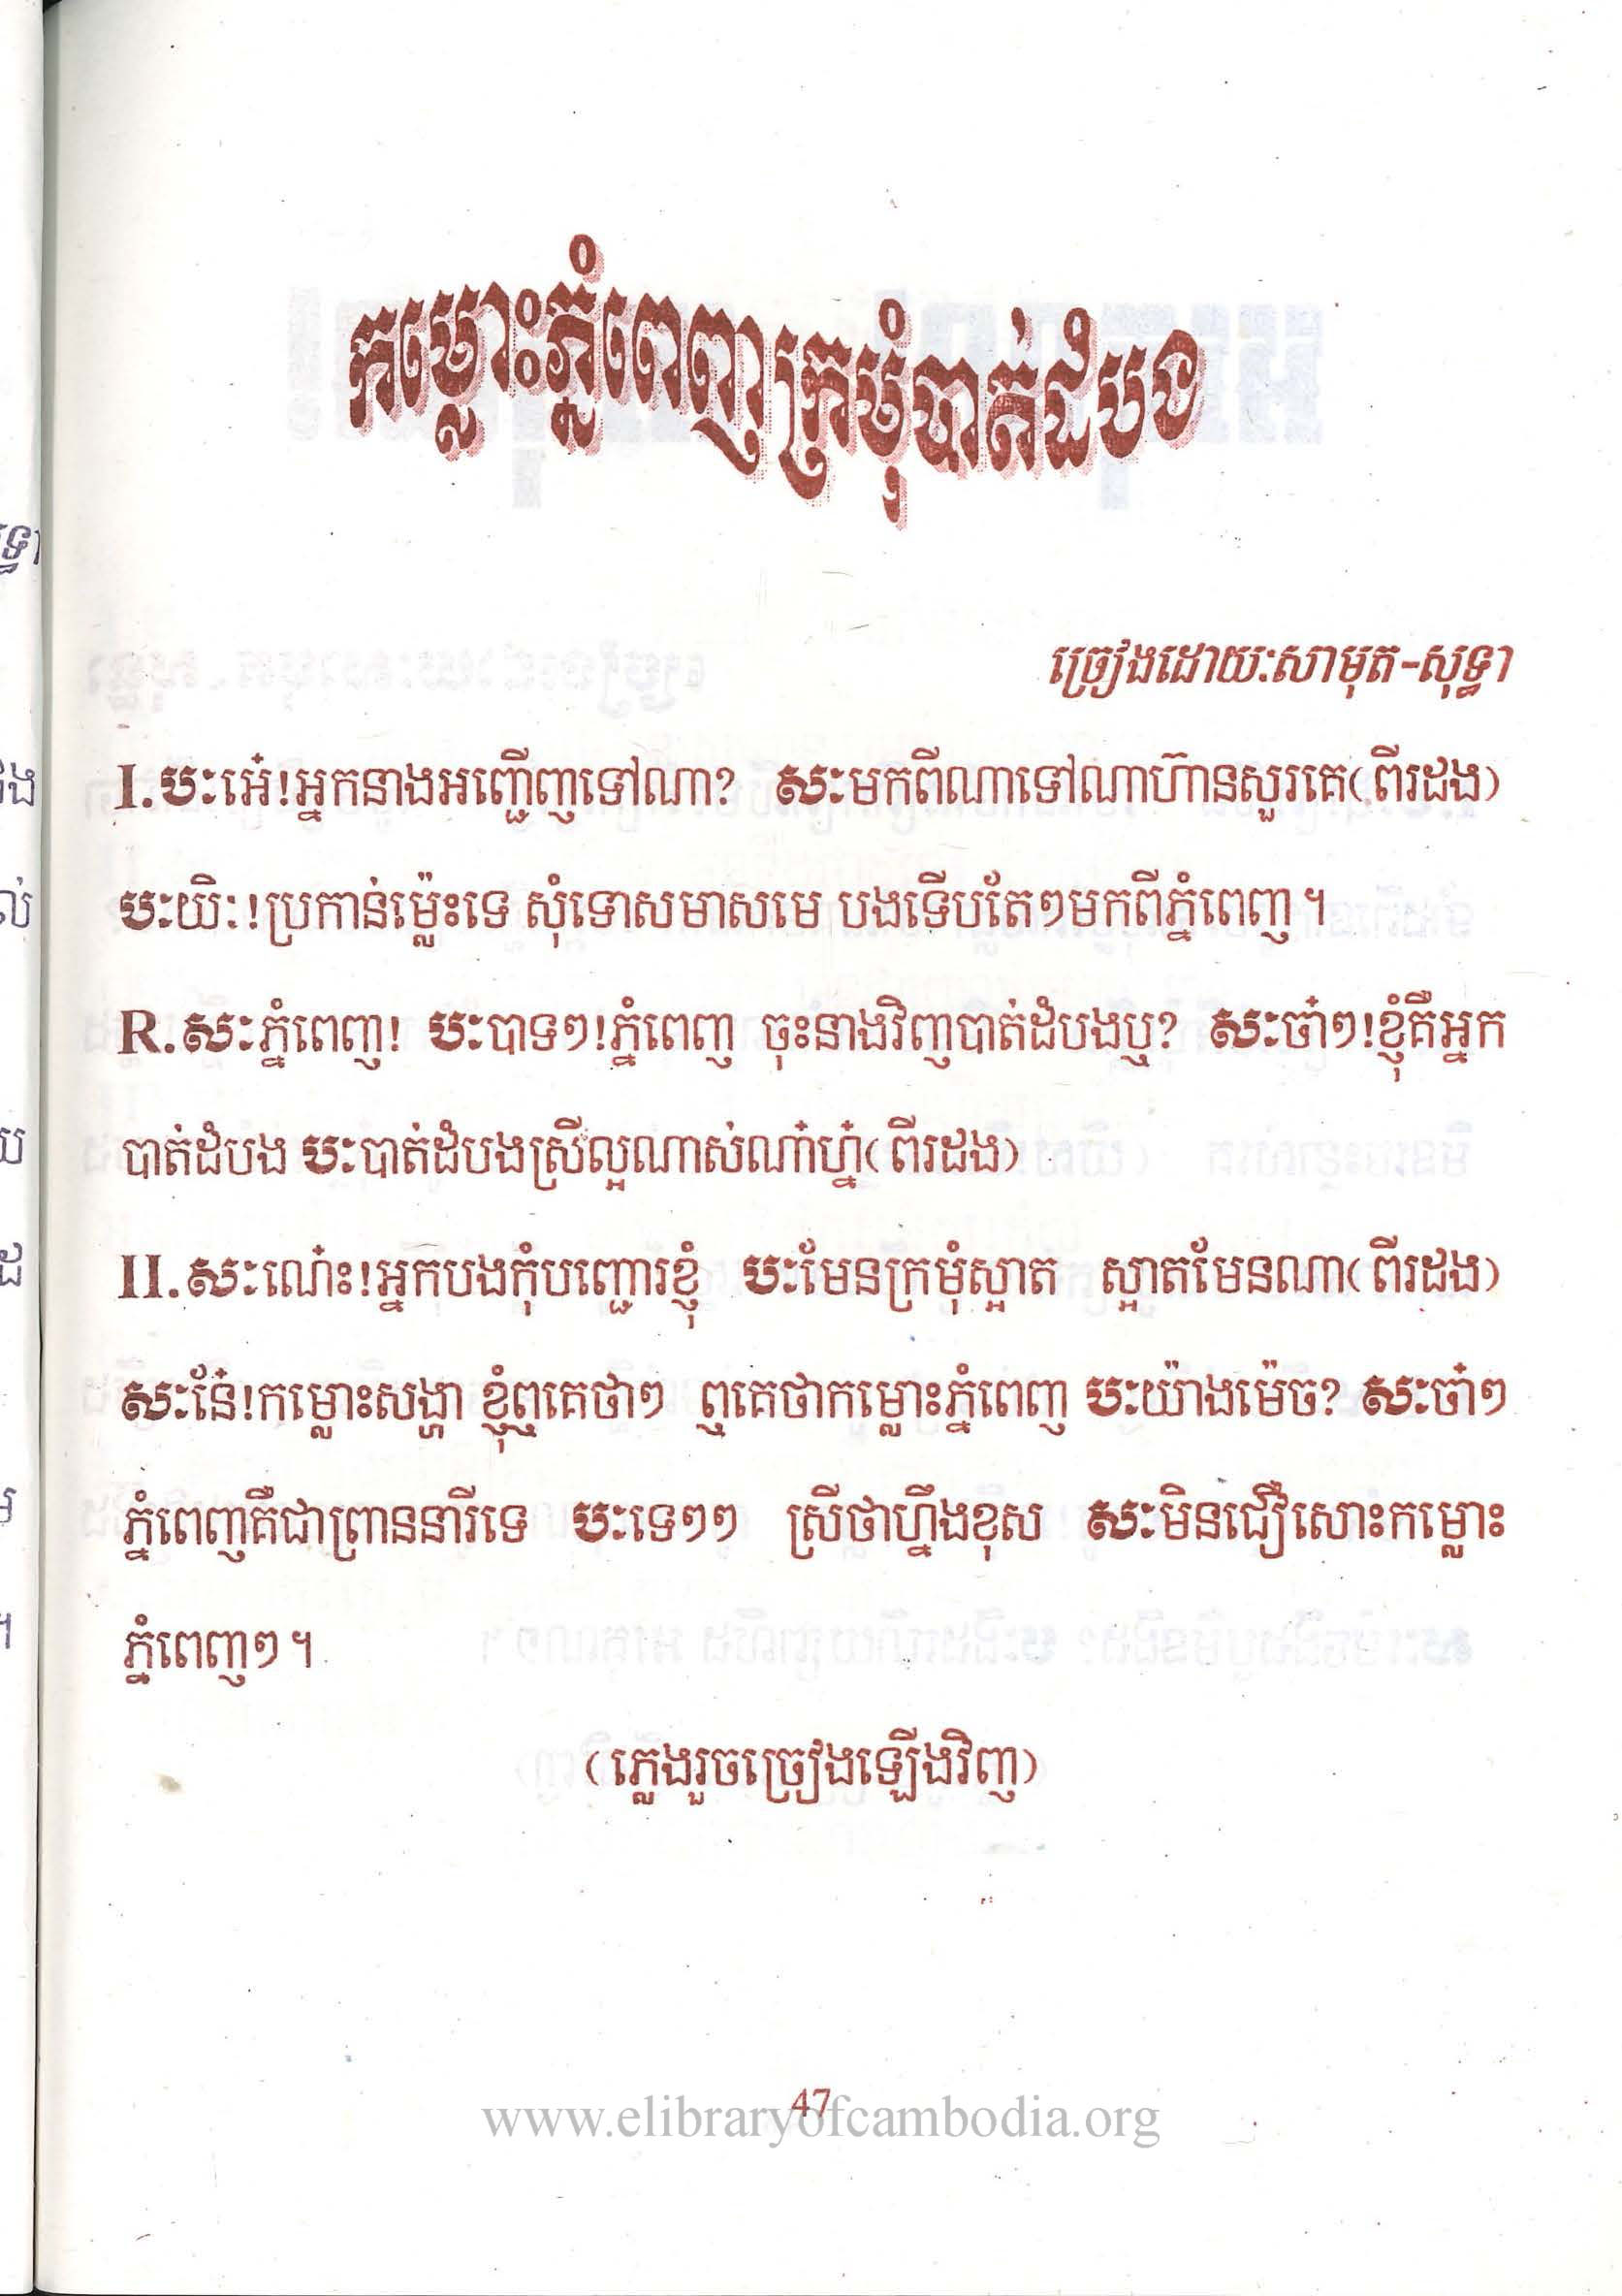 កម្លោះភ្នំពេញក្រមុំបាត់ដំបង
ច្រៀងដោយៈសាមុត-សុទ្ធា
I.បៈអេ៎!អ្នកនាងអញ្ជើញទៅណា? សៈមកពីណាទៅណាហ៊ានសួរគេ(ពីរដង)
បៈយិៈ!ប្រកាន់ម្ល៉េះទេ សុំទោសមាសមេ បងទើបតែៗមកពីភ្នំពេញ។
R.សៈភ្នំពេញ! បៈបាទៗ!ភ្នំពេញ ចុះនាងវិញបាត់ដំបងឬ? សៈចា៎ៗ!ខ្ញុំគឺអ្នក
បាត់ដំបង បៈបាត់ដំបងស្រីល្អណាស់ណា៎ហ្ន៎(ពីរដង)
II.សៈណេ៎ះ!អ្នកបងកុំបញ្ជោរខ្ញុំ បៈមែនក្រមុំស្អាត ស្អាតមែនណា(ពីរដង)
សៈនែ៎!កម្លោះសង្ហា ខ្ញុំឮគេថាៗ ឮគេថាកម្លោះភ្នំពេញ បៈយ៉ាងម៉េច? សៈចា៎ៗ
ភ្នំពេញគឺជាព្រាននារីទេ បៈទេៗៗ ស្រីថាហ្នឹងខុស សៈមិនជឿសោះកម្លោះ
ភ្នំពេញៗ។
(ភ្លេងរួចច្រៀងឡើងវិញ)
47
www.elibraryofcambodia.org